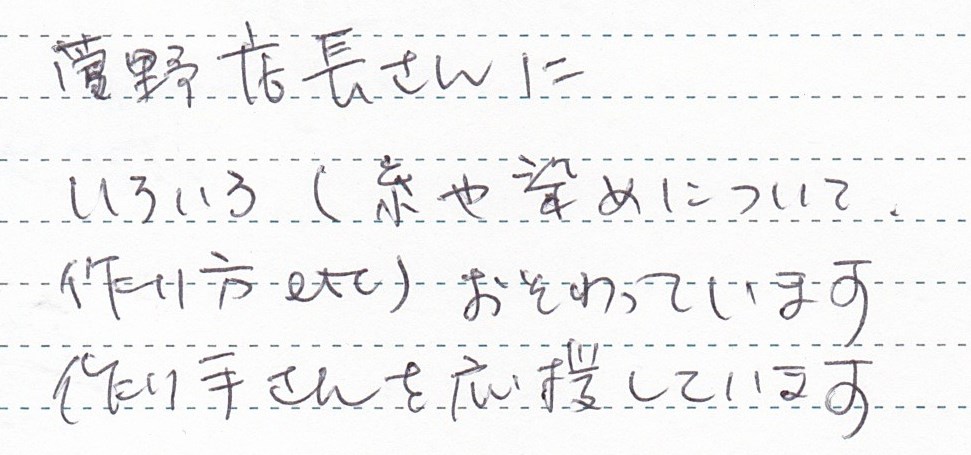 野店長さんに
いろいろ（糸や染めについて、
作り方etc）おそわっています
作り手さんを応援しています